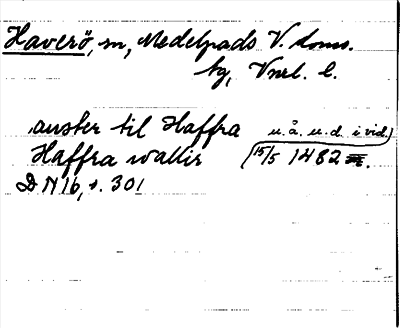 Haverö, sn, Medelpads V. doms.
tg, Vnrl. l.
auster til Haffra u.å. u.d. i vid.
Haffra wallir (15/5 1482).
DN 16, s. 301